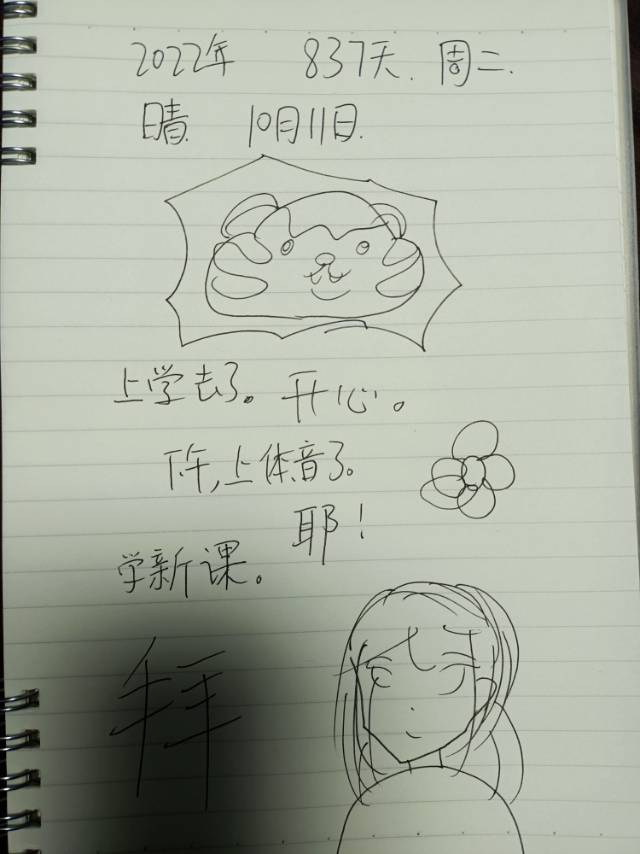 2022年 837天. 周二.
晴 10月11日.
上学去了。开心。
下午,上体音了。
耶!
学新课。
拜